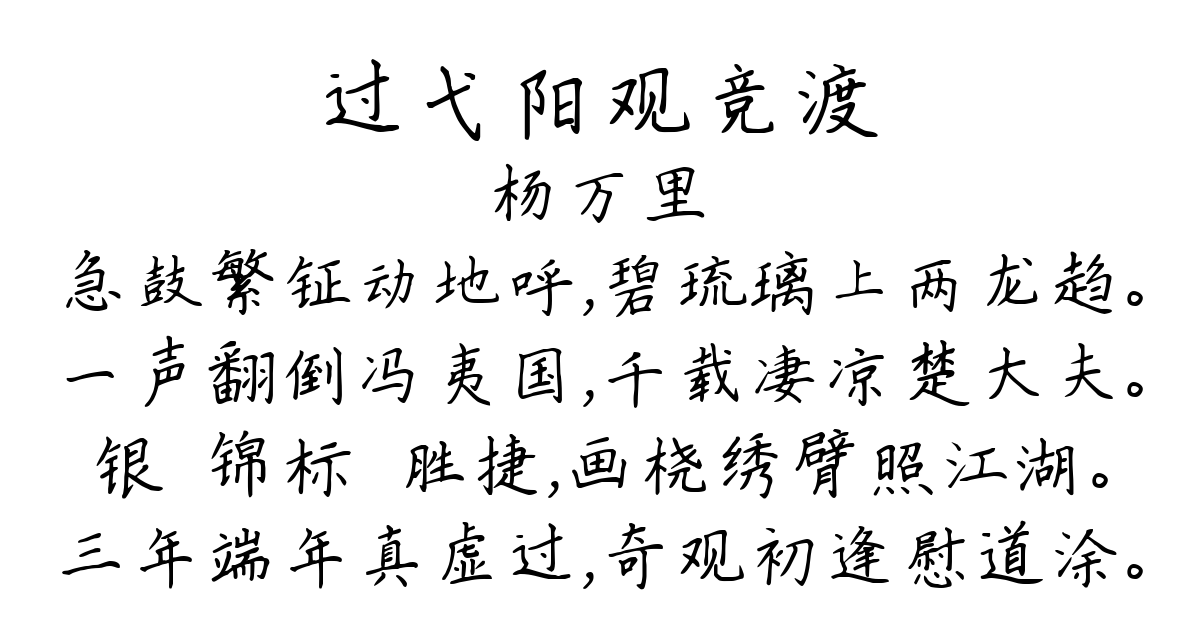 过弋阳观竞渡
杨万里
急鼓繁钲动地呼,碧琉璃上两龙趋。
一声翻倒冯夷国,千载凄凉楚大夫。
银 锦标 胜捷,画桡绣臂照江湖。
三年端年真虚过,奇观初逢慰道涂。